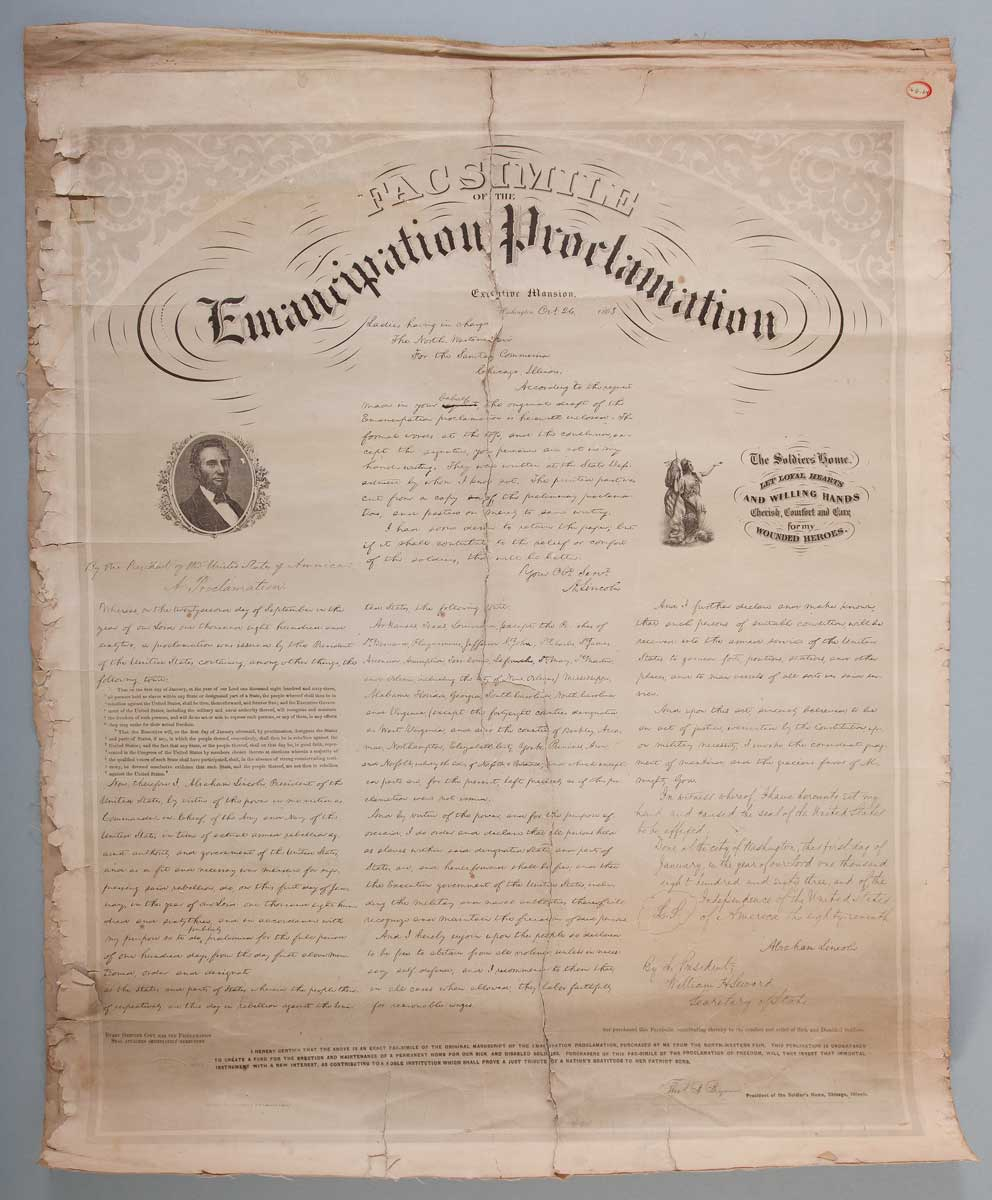 FACSIMILE
OF THE
Emancipation Proclamation
Executive Mansion,
Washington, Oct. 26, 1863
Ladies having in charge
The North Western Fair
For the Sanitary Commission
Chicago, Illinois.
According to the request
made in your behalf, the original draft of the
Emancipation proclamation is herewith inclosed. The
formal words at the top, and the conclusion, ex-
cept the signature, you perceive are not in my
hand-writing. They were written at the State Dep-
artment by whom I know not. The printed part was
cut from a copy of the preliminary proclama-
tion, and pasted on merely to save writing.
I had some desire to retain the paper; but
if it shall contribute to the relief or comfort
of the soldiers, that will be better.
Your Obt. Servt.
A. Lincoln
The Soldiers' Home.
LET LOYAL HEARTS
AND WILLING HANDS
Cherish, Comfort and Care
for my
WOUNDED HEROES.
By the President of the United States of America:
A Proclamation.
Whereas, on the twenty second day of September, in the
year of our Lord one thousand eight hundred and
sixty two, a proclamation was issued by the President
of the United States, containing, among other things, the
following, to wit:
"That on the first day of January, in the year of our Lord one thousand eight hundred and sixty-three,
all persons held as slaves within any State or designated part of a State, the people whereof shall then be in
rebellion against the United States, shall be then, thenceforward, and forever free; and the Executive Govern-
ment of the United States, including the military and naval authority thereof, will recognize and maintain
the freedom of such persons, and will do no act or acts to repress such persons, or any of them, in any efforts
they may make for their actual freedom.
"That the Executive will, on the first day of January aforesaid, by proclamation, designate the States
and parts of States, if any, in which the people thereof, respectively, shall then be in rebellion against the
United States; and the fact that any State, or the people thereof, shall on that day be, in good faith, repre-
sented in the Congress of the United States by members chosen thereto at elections wherein a majority of
the qualified voters of such State shall have participated, shall, in the absence of strong countervailing testi-
mony, be deemed conclusive evidence that such State, and the people thereof, are not then in rebellion
against the United States."
Now, therefore I, Abraham Lincoln, President of the
United States, by virtue of the power in me vested as
Commander-in-Chief, of the Army and Navy of the
United States, in time of actual armed rebellion ag-
ainst authority and government of the United States,
and as a fit and necessary war measure for sup-
pressing said rebellion, do, on this first day of Jan-
uary, in the year of our Lord one thousand eight hun-
dred and sixty three, and in accordance with
my purpose so to do, publicly proclaimed for the full period
of one hundred days, from the day first above men-
tioned, order and designate
as the States and parts of States wherein the people there-
of respectively, are this day in rebellion against the Uni-
ted States, the following, to wit:
Arkansas, Texas, Louisiana, (except the Parishes of
St. Bernard, Plaquemines, Jefferson, St. John, St. Charles, St. James,
Ascension, Assumption, Terrebonne, Lafourche, St. Mary, St. Martin,
and Orleans, including the City of New Orleans) Mississippi,
Alabama, Florida, Georgia, South Carolina, North Carolina,
and Virginia, (except the fortyeight counties designated
as West Virginia, and also the counties of Berkley, Acco-
mac, Northampton, Elizabeth City, York, Princess Ann,
and Norfolk, including the cities of Norfolk & Portsmouth); and which except-
ed parts are, for the present, left precisely as if this pro-
clamation were not issued.
And by virtue of the power, and for the purpose af-
oresaid, I do order and declare that all persons held
as slaves within said designated States, and parts of
States, are, and henceforward shall be free; and that
the Executive government of the United States, inclu-
ding the military and naval authorities thereof, will
recognize and maintain the freedom of said persons.
And I hereby enjoin upon the people so declared
to be free to abstain from all violence, unless in neces-
sary self-defence; and I recommend to them that,
in all cases when allowed, they labor faithfully
for reasonable wages.
And I further declare and make known,
that such persons of suitable condition, will be
received into the armed service of the United
States to garrison forts, positions, stations, and other
places, and to man vessels of all sorts in said ser-
vice.
And upon this act, sincerely believed to be
an act of justice, warranted by the Constitution, up-
on military necessity, I invoke the considerate judg-
ment of mankind, and the gracious favor of Al-
mighty God.
In witness whereof, I have hereunto set my
hand and caused the seal of the United States
to be affixed.
Done at the city of Washington, this first day of
January, in the year of our Lord one thousand
eight hundred and sixty three, and of the
Independence of the United States
(L.S.) of America the eighty-seventh.
Abraham Lincoln
By the President;
William H. Seward
Secretary of State
EVERY GENUINE COPY HAS THE PROCLAMATION
SEAL ATTACHED IMMEDIATELY HEREUNDER
has purchased this Facsimile, contributing thereby to the comfort and relief of Sick and Disabled Soldiers.
I HEREBY CERTIFY THAT THE ABOVE IS AN EXACT FAC-SIMILE OF THE ORIGINAL MANUSCRIPT OF THE EMANCIPATION PROCLAMATION, PURCHASED BY ME FROM THE NORTH-WESTERN FAIR. THIS PUBLICATION IS UNDERTAKEN
TO CREATE A FUND FOR THE ERECTION AND MAINTENANCE OF A PERMANENT HOME FOR OUR SICK AND DISABLED SOLDIERS. PURCHASERS OF THIS FAC-SIMILE OF THE PROCLAMATION OF FREEDOM, WILL THUS INVEST THAT IMMORTAL
INSTRUMENT WITH A NEW INTEREST, AS CONTRIBUTING TO A NOBLE INSTITUTION WHICH SHALL PROVE A JUST TRIBUTE OF A NATION'S GRATITUDE TO HER PATRIOT SONS.
President of the Soldier's Home, Chicago, Illinois.